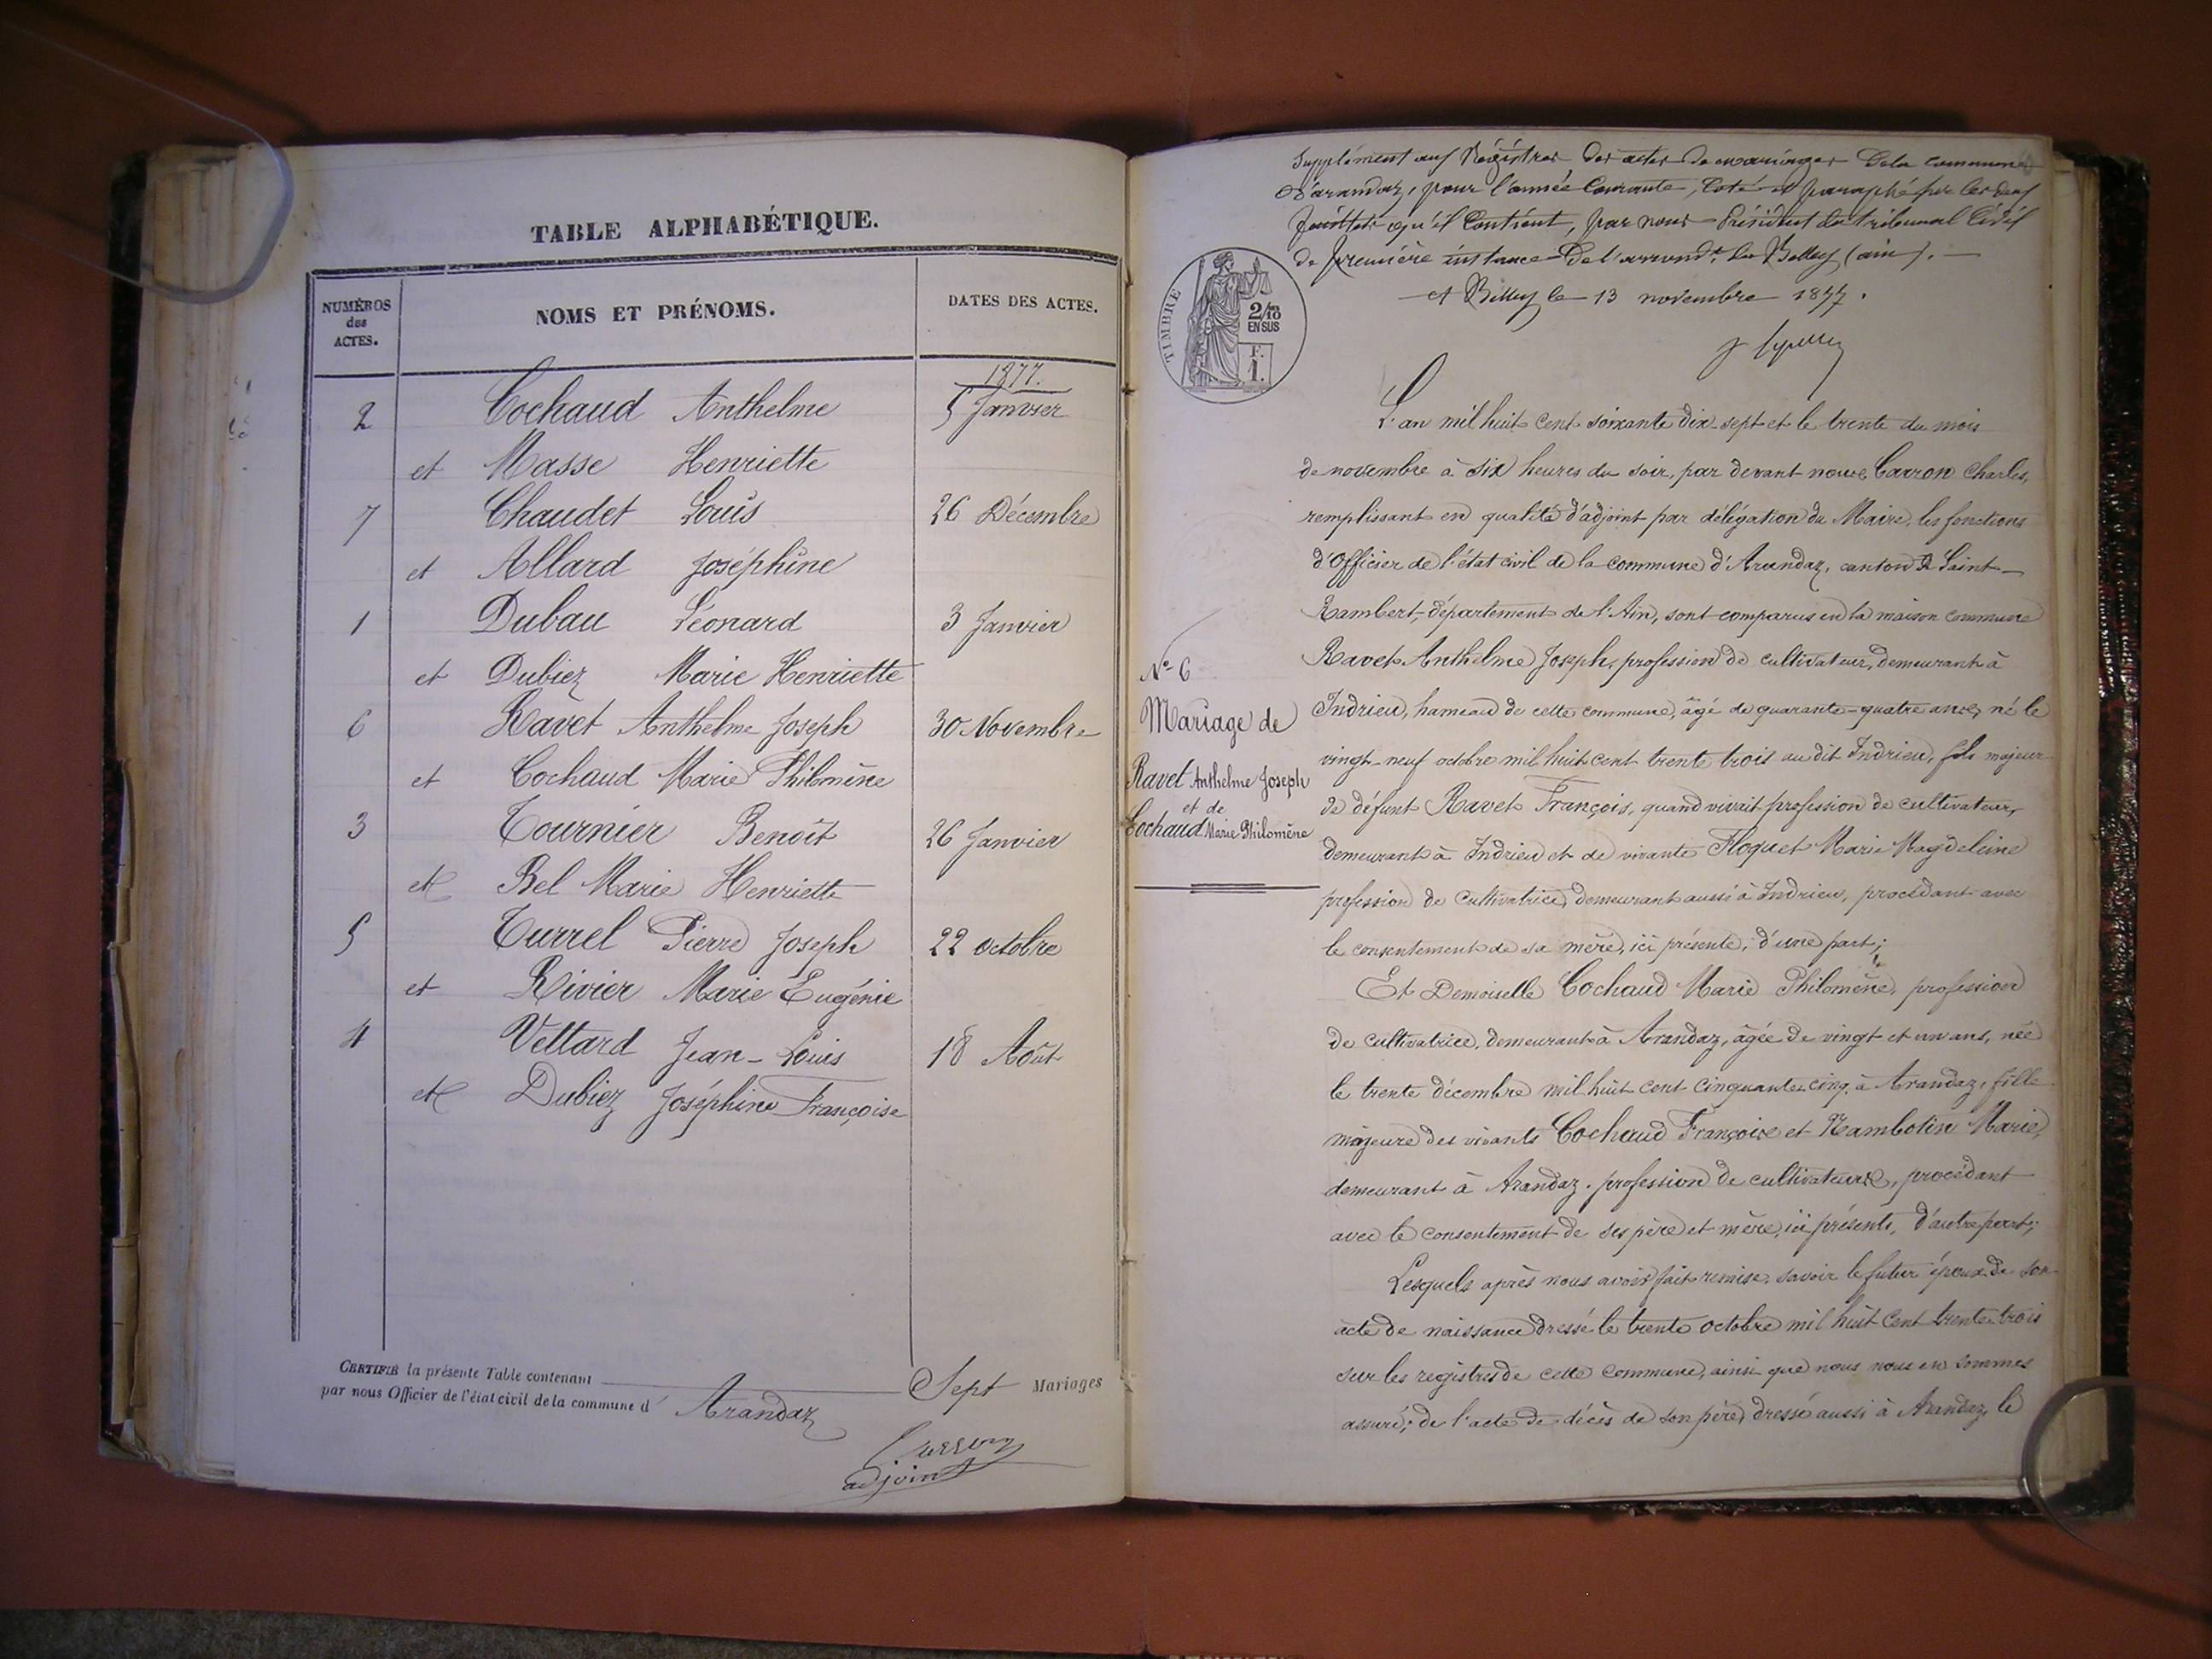 TABLE ALPHABÉTIQUE.
NUMÉROS
des
ACTES.
NOMS ET PRÉNOMS.
DATES DES ACTES.
1877.
2 Cochaud Anthelme 5 Janvier
et Masse Henriette
7 Chaudet Louis 26 Décembre
et Allard Joséphine
1 Dubau Léonard 3 Janvier
et Dubiez Marie Henriette
6 Ravet Anthelme Joseph 30 Novembre
et Cochaud Marie Philomène
3 Tournier Benoît 26 Janvier
et Bel Marie Henriette
5 Turrel Pierre Joseph 22 octobre
et Rivier Marie Eugénie
4 Vettard Jean-Louis 18 Août
et Dubiez Joséphine Françoise
CERTIFIÉ la présente Table contenant Sept Mariages
par nous Officier de l'état civil de la commune d' Arandaz
Carron
adjoint
Supplément aux Régistres des actes de mariages de la commune
d'arandaz, pour l'année Courante, Coté et paraphé sur les deux
feuillets qu'il Contient, par nous Président du tribunal Civil
de première instance de l'arrondt. de Belley (ain). —
A Belley le 13 novembre 1877.
TIMBRE
2/10
EN SUS
F.
1.
L'an mil huit cent soixante dix-sept et le trente du mois
de novembre à six heures du soir, par devant nous Carron Charles,
remplissant en qualité d'adjoint par délégation du Maire, les fonctions
d'Officier de l'état civil de la commune d'Arandaz, canton de Saint-
Rambert, département de l'Ain, sont comparus en la maison commune
Ravet Anthelme Joseph, profession de cultivateur, demeurant à
Indrieu, hameau de cette commune, âgé de quarante-quatre ans, né le
vingt-neuf octobre mil huit cent trente trois au dit Indrieu, fils majeur
de défunt Ravet François, quand vivait profession de cultivateur,
demeurant à Indrieu et de vivante Floquet Marie Magdeleine
profession de Cultivatrice, demeurant aussi à Indrieu, procédant avec
le consentement de sa mère, ici présente, d'une part;
Et Demoiselle Cochaud Marie Philomène, profession
de cultivatrice, demeurant à Arandaz, âgée de vingt et un ans, née
le trente décembre mil huit cent cinquante-cinq à Arandaz, fille
majeure des vivants Cochaud François et Rambotin Marie,
demeurant à Arandaz, profession de cultivateurs, procédant
avec le consentement de ses père et mère, ici présents, d'autre part;
Lesquels après nous avoir fait remise, savoir le futur époux de son
acte de naissance dressé le trente octobre mil huit cent trente-trois
sur les registres de cette commune, ainsi que nous nous en sommes
assuré; de l'acte de décès de son père, dressé aussi à Arandaz, le
N° 6
Mariage de
Ravet Anthelme Joseph
et de
Cochaud Marie Philomène